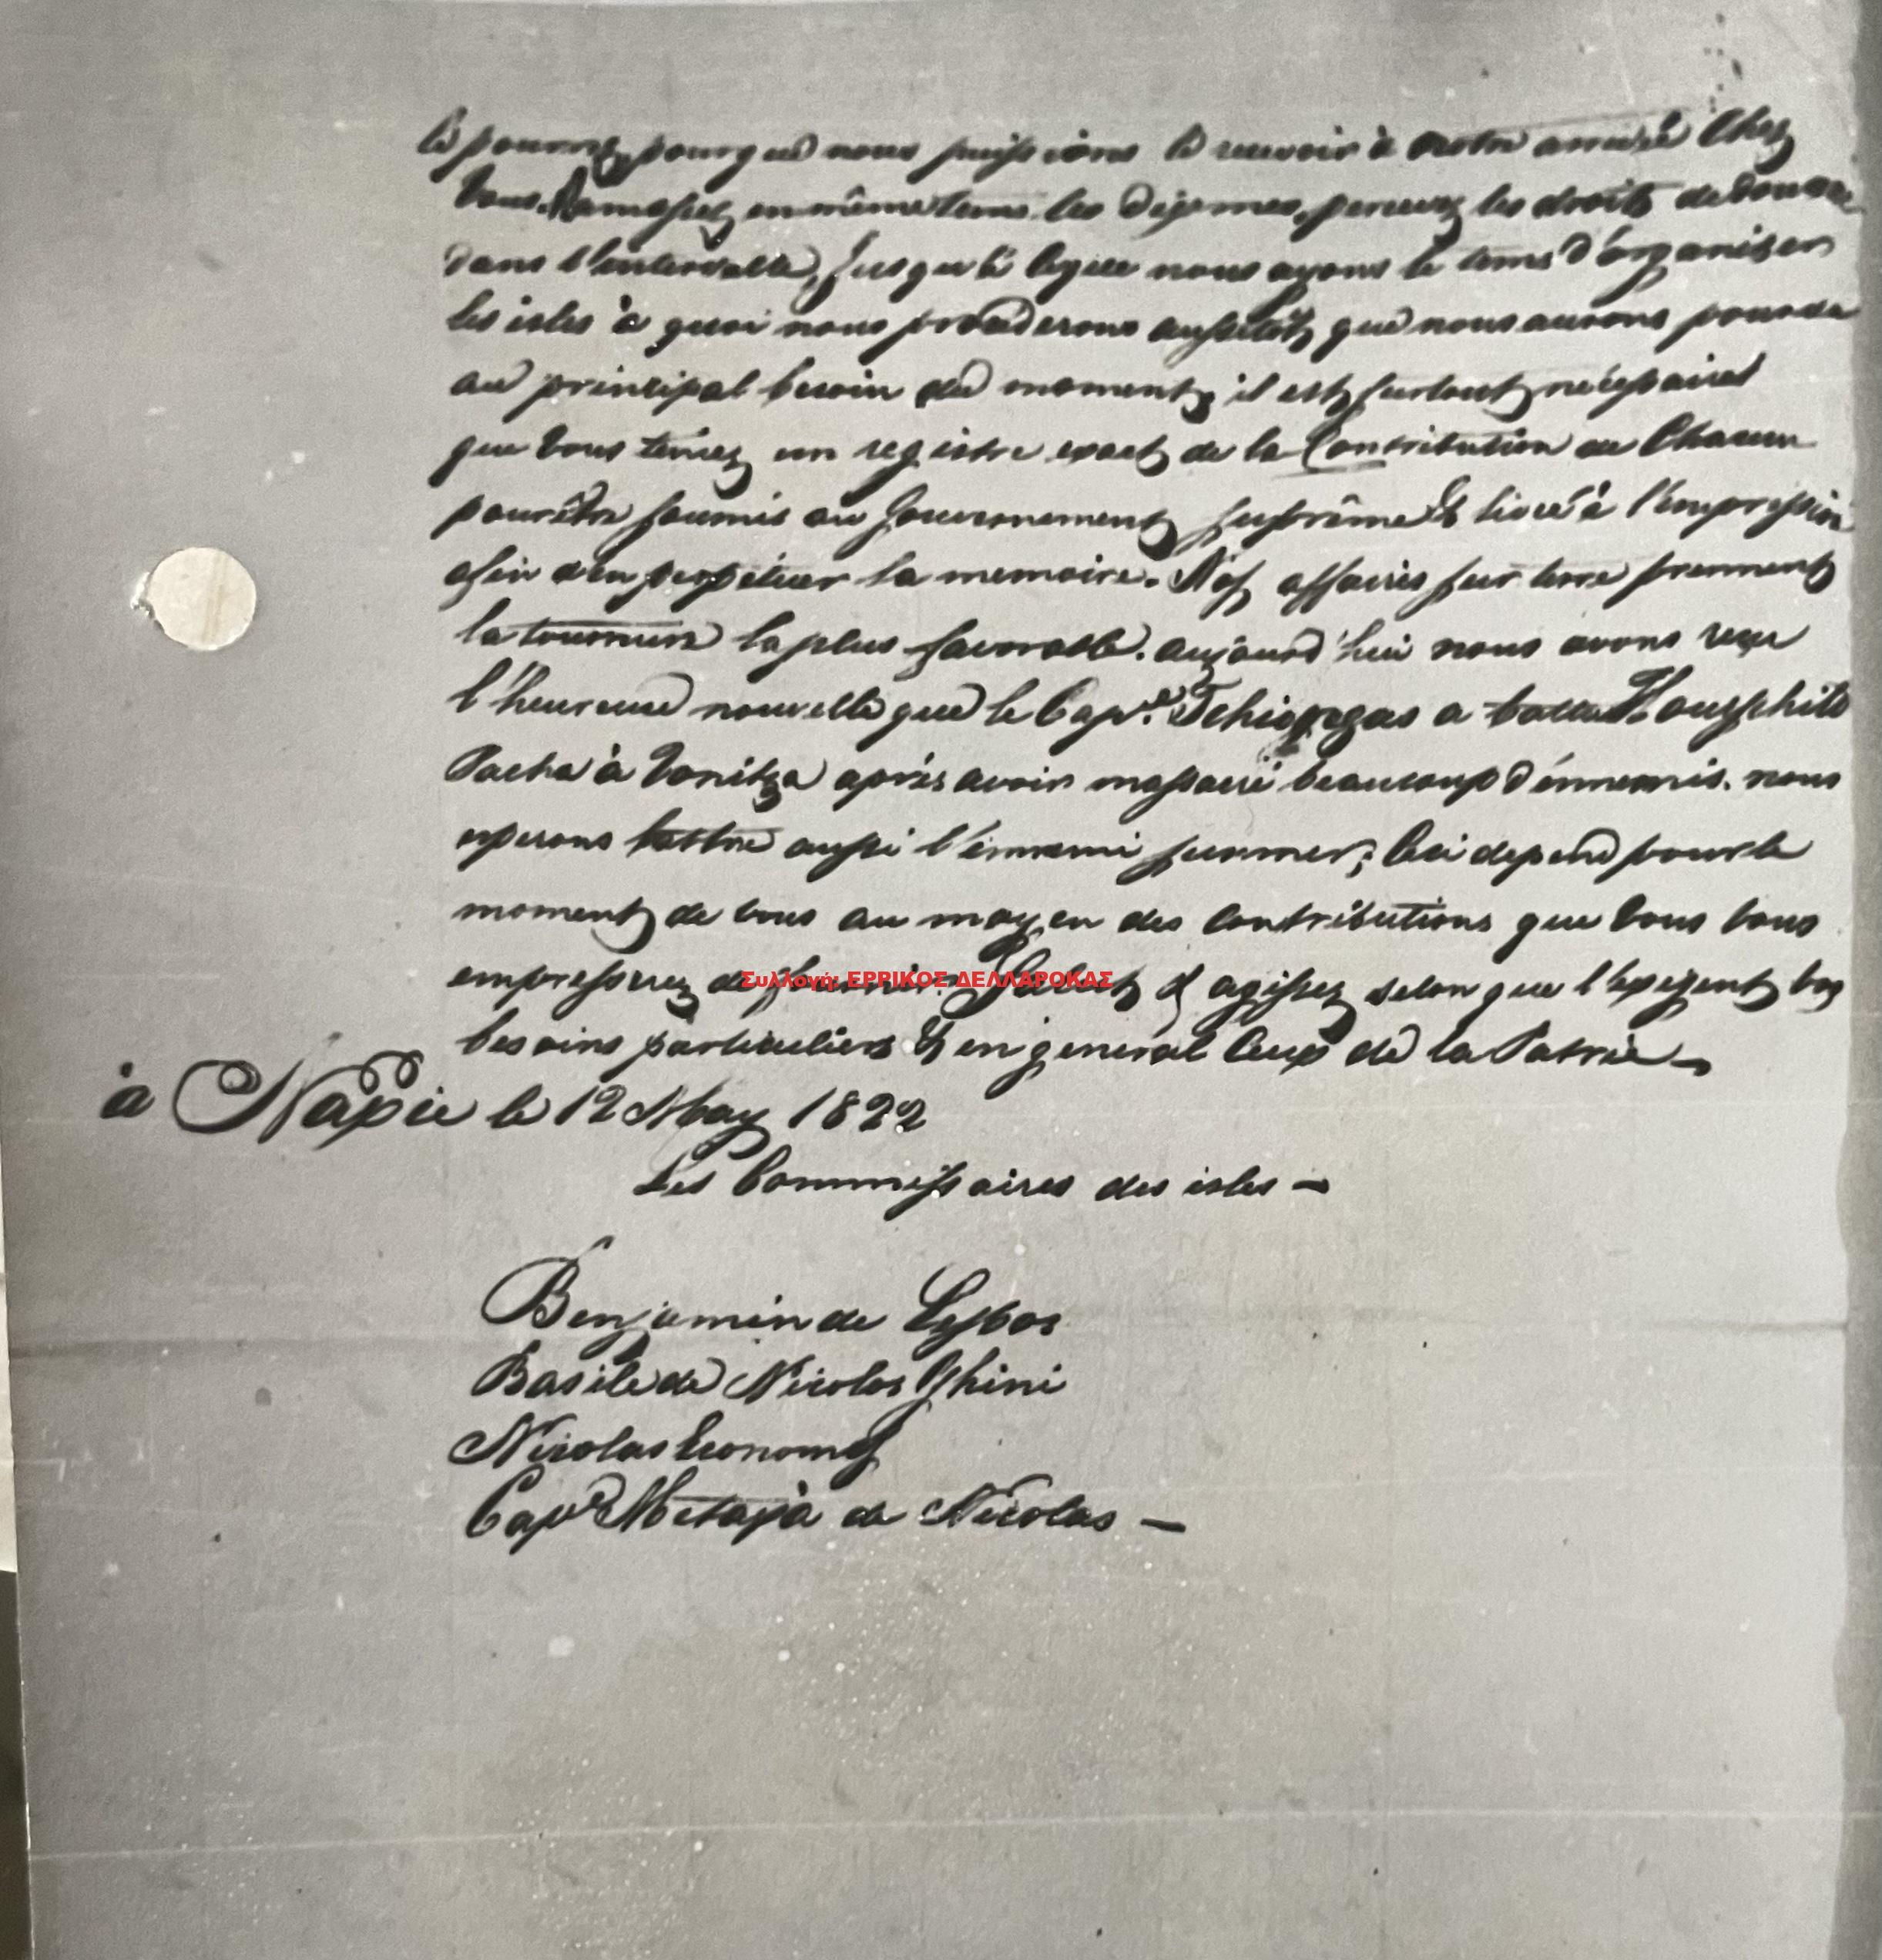 le pourrez, pourque nous puissions le recevoir à notre arrivée Chez
Vous. Ramassez en même tems les dejemes, percevez les droits de Douane
dans l'intervalle, jusqu'à ceque nous ayons le tems d'organiser
les isles à quoi nous procederons aussitôt que nous aurons pourvu
au principal besoin du moment, il est surtout nécessaire
que Vous teniez un registre exact de la Contribution de Chacun
pour être soumis au Gouvernement suprême & livré à l'impression
afin d'en perpetuer la memoire. Nos affaires sur terre prennent
la tournure la plus favorable. aujourd'hui nous avons reçu
l'heureuse nouvelle que le Cap.ne a battu Hourschite
Pacha à Vonitza après avoir massacré beaucoup d'énnemis. nous
esperons battre aussi l'énnemi sur mer; Ceci depend pour le
moment de vous au moyen des Contributions que Vous Vous
empresserez de fournir. Salut & agissez selon que l'exigent vos
besoins particuliers & en general Ceux de la Patrie
Συλλογή: ΕΡΡΙΚΟΣ ΔΕΛΛΑΡΟΚΑΣ
à Naxie le 12 May 1822
Les Commissaires des isles
Benjamin de Lesbos
Basile de Nicolas Ghini
Nicolas Economos
Cap.ne Metaxà de Nicolas